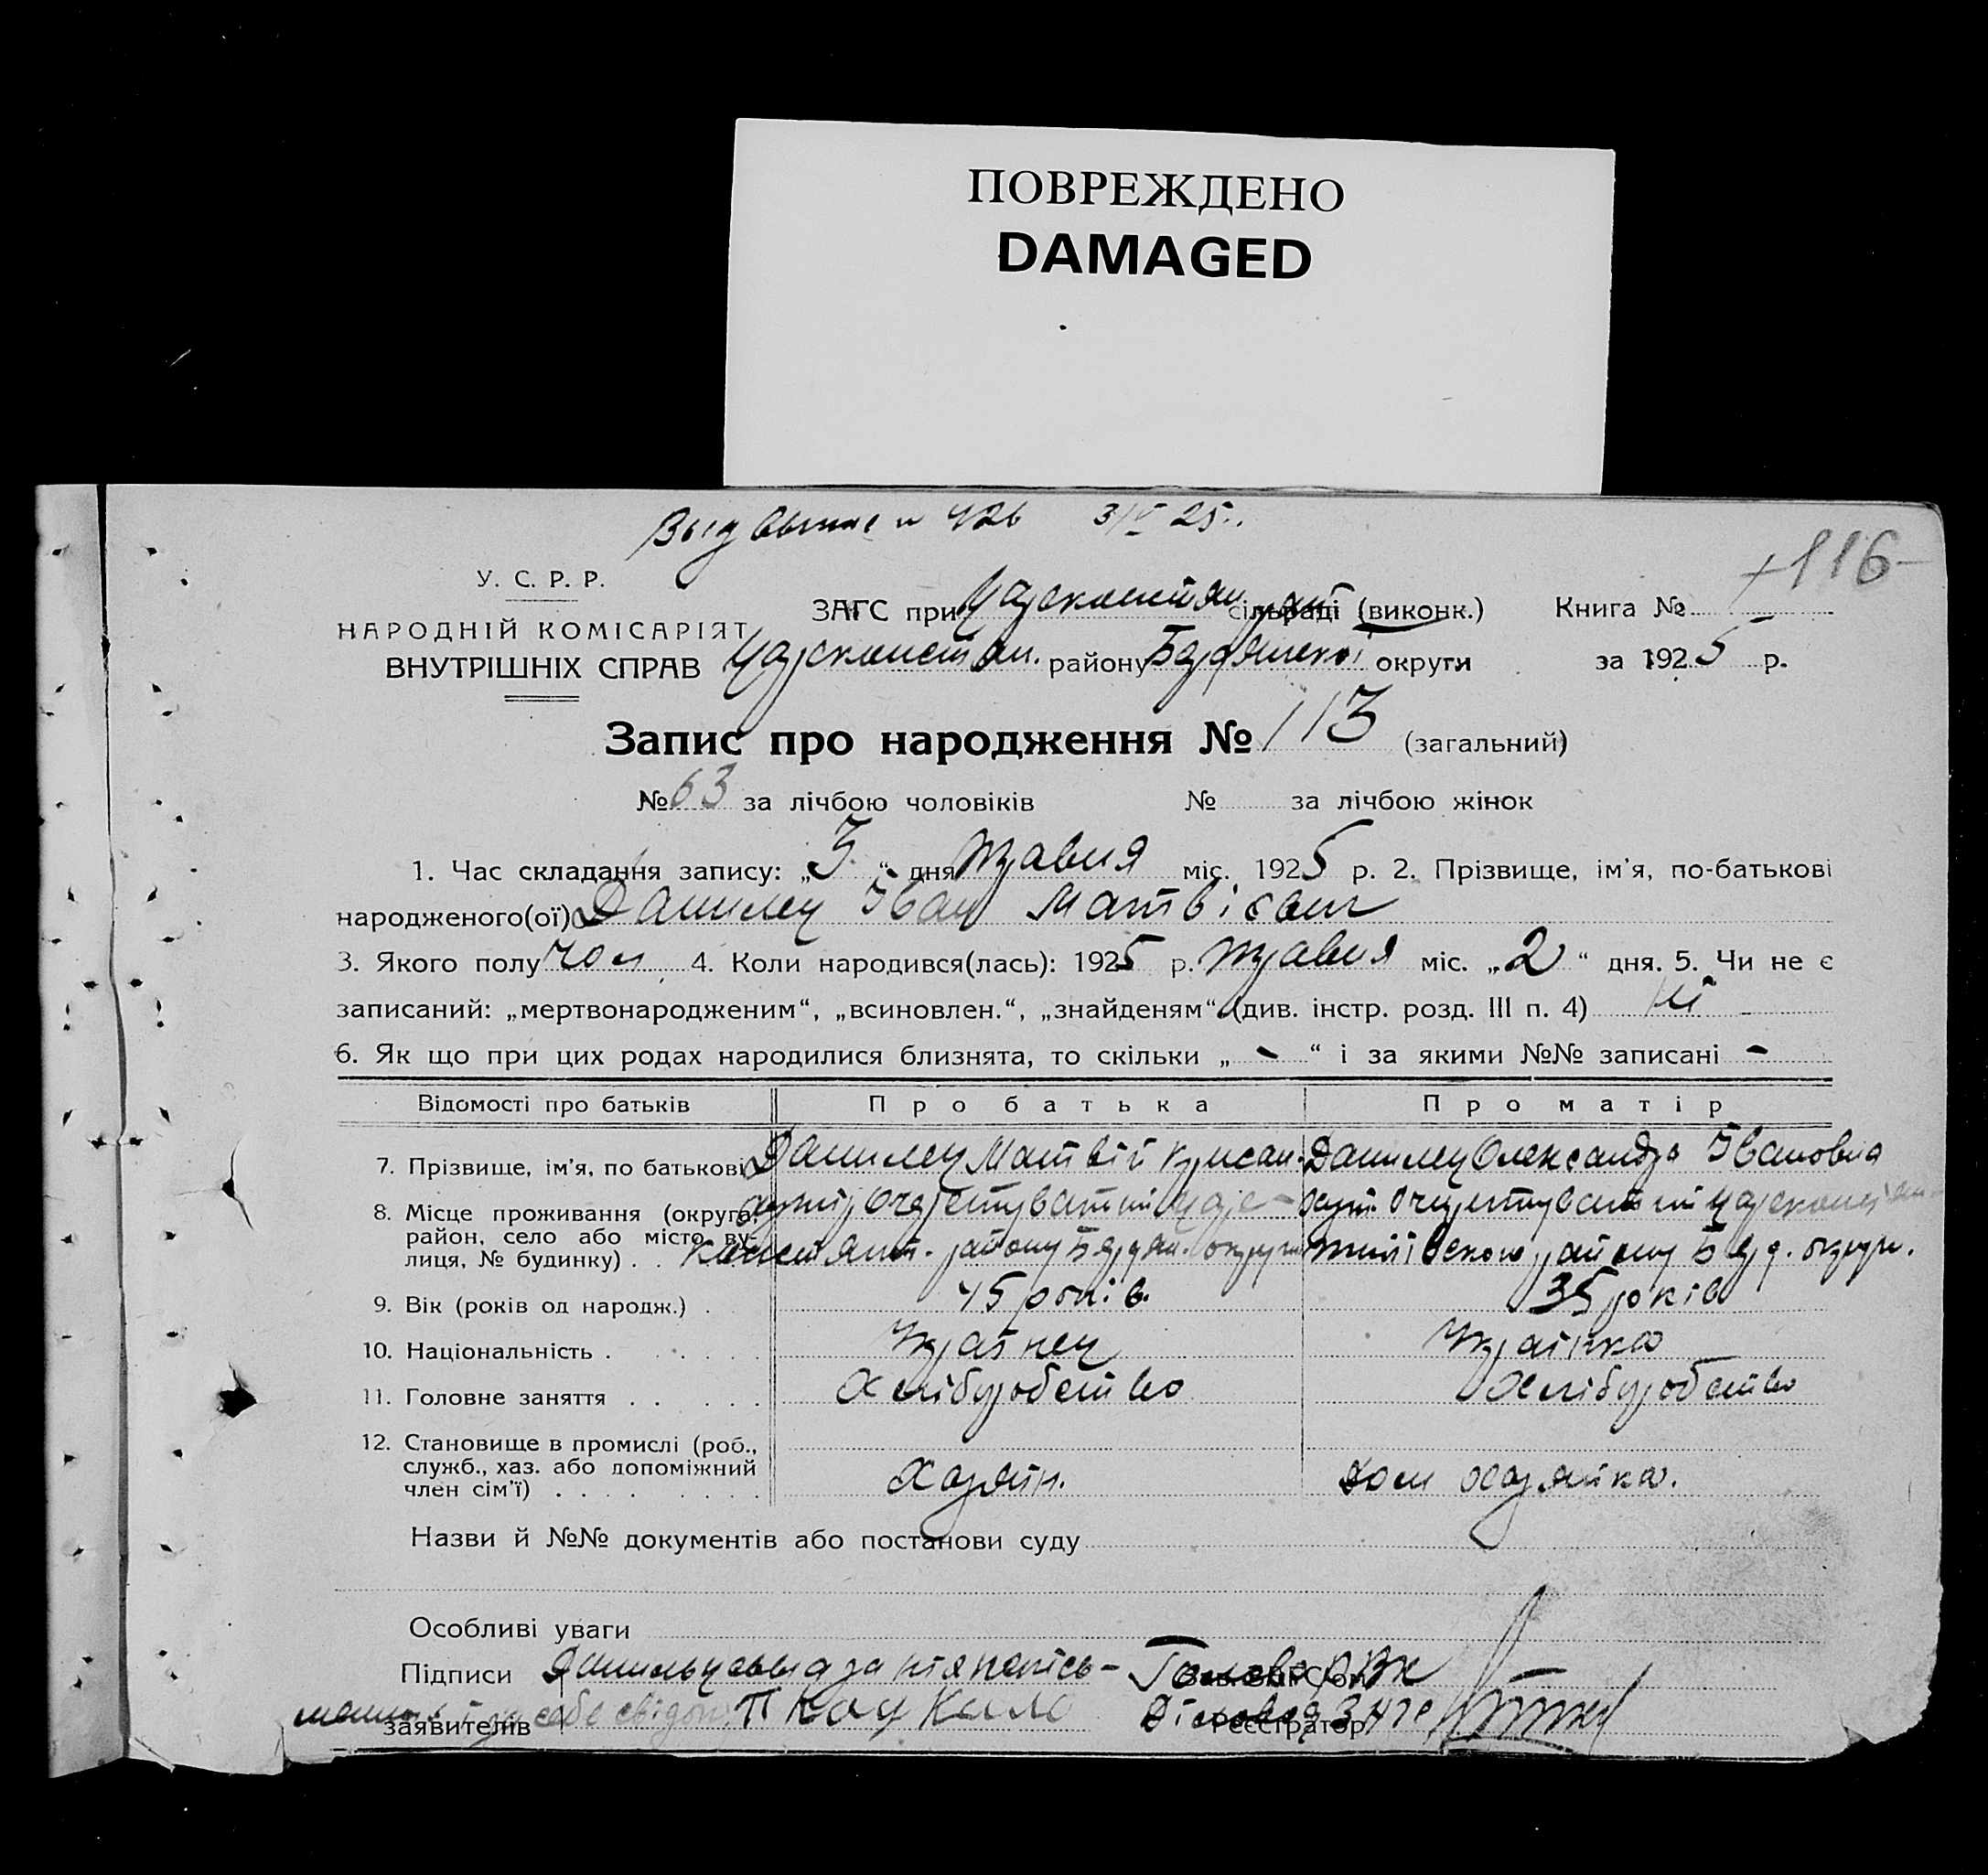 ПОВРЕЖДЕНО
DAMAGED
3/V 25
116
У. С. Р. Р.
НАРОДНІЙ КОМІСАРІЯТ
ВНУТРІШНІХ СПРАВ
ЗАГС при Цареконстян. сільраді (виконк.) Книга №
Царсконстян. району Бердянської округи за 1925 р.
Запис про народження № 113 (загальний)
№ 63 за лічбою чоловіків № за лічбою жінок
1. Час складання запису: „3“ дня травня міс. 1925 р. 2. Прізвище, ім'я, по-батькові
народженого(ої) Данилец Іван Матвієвич
3. Якого полу чол 4. Коли народився(лась): 1925 р. травня міс. „2“ дня. 5. Чи не є
записаний: „мертвонародженим“, „всиновлен.“, „знайденям“ (див. інстр. розд. III п. 4) ні
6. Як що при цих родах народилися близнята, то скільки „ - “ і за якими №№ записані -
Відомості про батьків Про батька Про матір
7. Прізвище, ім'я, по батькові Данилец Матвій Данилец Олександра Івановна
8. Місце проживання (округа, район, село або місто, вулиця, № будинку) . . району Бердян. округи району Берд. округи.
9. Вік (років од народж.) . 45 років. 35 років
10. Національність . . . . . Украінец Украінка
11. Головне заняття . . . . . Хліборобство Хліборобство
12. Становище в промислі (роб., служб., хаз. або допоміжний член сім'ї) . . . . Хазяін. дом хазяйка.
Назви й №№ документів або постанови суду
Особливі уваги
Підписи Голова РВК
заявителів Діловод ЗАГС
Реєстратор